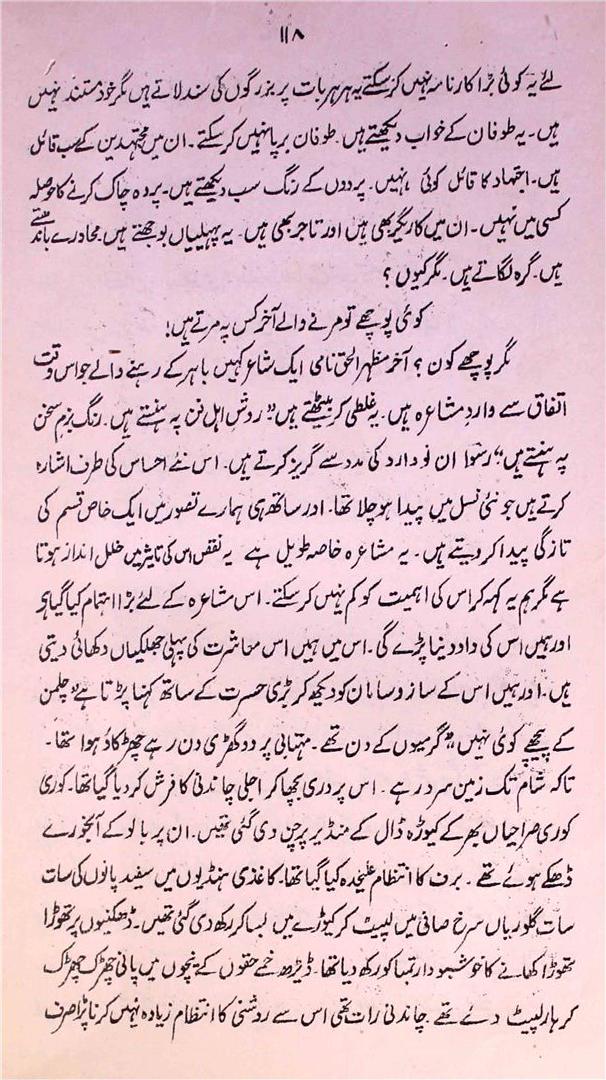 ۱۱۸
لئے یہ کوئی بڑا کارنامہ نہیں کر سکتے یہ ہر ہر بات پر بزرگوں کی سند لاتے ہیں مگر خود مستند نہیں
ہیں۔ یہ طوفان کے خواب دیکھتے ہیں۔ طوفان برپا نہیں کر سکتے۔ ان میں مجتہدین کے سب قائل
ہیں۔ اجتہاد کا قائل کوئی نہیں۔ پردوں کے رنگ سب دیکھتے ہیں۔ پردہ چاک کرنے کا حوصلہ
کسی میں نہیں۔ ان میں کاریگر بھی ہیں اور تاجر بھی ہیں۔ یہ پہیلیاں بوجھتے ہیں محاورے باندھتے
ہیں۔ گرہ لگاتے ہیں۔ مگر کیوں؟
کوئی پوچھے تو مرنے والے آخر کس پہ مرتے ہیں!
مگر پوچھے کون؟ آخر مظہر الحق نامی ایک شاعر کہیں باہر کے رہنے والے جو اس وقت
اتفاق سے وارد مشاعرہ ہیں۔ یہ غلطی کر بیٹھتے ہیں "روش اہل فن پہ ہنستے ہیں۔ رنگ بزم سخن
پہ ہنستے ہیں" رسوا ان نو وارد کی مدد سے گریز کرتے ہیں۔ اس نئے احساس کی طرف اشارہ
کرتے ہیں جو نئی نسل میں پیدا ہو چلا تھا۔ اور ساتھ ہی ہمارے تصور میں ایک خاص قسم کی
تازگی پیدا کر دیتے ہیں۔ یہ مشاعرہ خاصہ طویل ہے یہ نقص اس کی تاثیر میں خلل انداز ہوتا
ہے مگر ہم یہ کہہ کر اس کی اہمیت کو کم نہیں کر سکتے۔ اس مشاعرہ کے لئے بڑا اہتمام کیا گیا ہے
اور ہمیں اس کی داد دینا پڑے گی۔ اس میں ہمیں اس معاشرت کی پہلی جھلکیاں دکھائی دیتی
ہیں۔ اور ہمیں اس کے ساز و سامان کو دیکھ کر بڑی حسرت کے ساتھ کہنا پڑتا ہے "چلمن
کے پیچھے کوئی نہیں" "گرمیوں کے دن تھے۔ مہتابی پر دو گھڑی دن رہے چھڑکاؤ ہوا تھا۔
تاکہ شام تک زمین سرد رہے۔ اس پر دری بچھا کر اجلی چاندنی کا فرش کر دیا گیا تھا۔ کوری
کوری صراحیاں بھر کے کیوڑہ ڈال کے منڈیر پر چن دی گئی تھیں۔ ان پر بالو کے آبخورے
ڈھکے ہوئے تھے۔ برف کا انتظام علیحدہ کیا گیا تھا۔ کاغذی ہنڈیوں میں سفید پانوں کی سات
سات گلوریاں سرخ صافی میں لپیٹ کر کیوڑے میں بسا کر رکھ دی گئی تھیں۔ ڈھکنیوں پر تھوڑا
تھوڑا کھانے کا خوشبودار تمباکو رکھ دیا تھا۔ ڈیڑھ خمے حقوں کے نیچوں میں پانی چھڑک چھڑک
کر ہار لپیٹ دئے تھے۔ چاندنی رات تھی اس سے روشنی کا انتظام زیادہ نہیں کرنا پڑا صرف